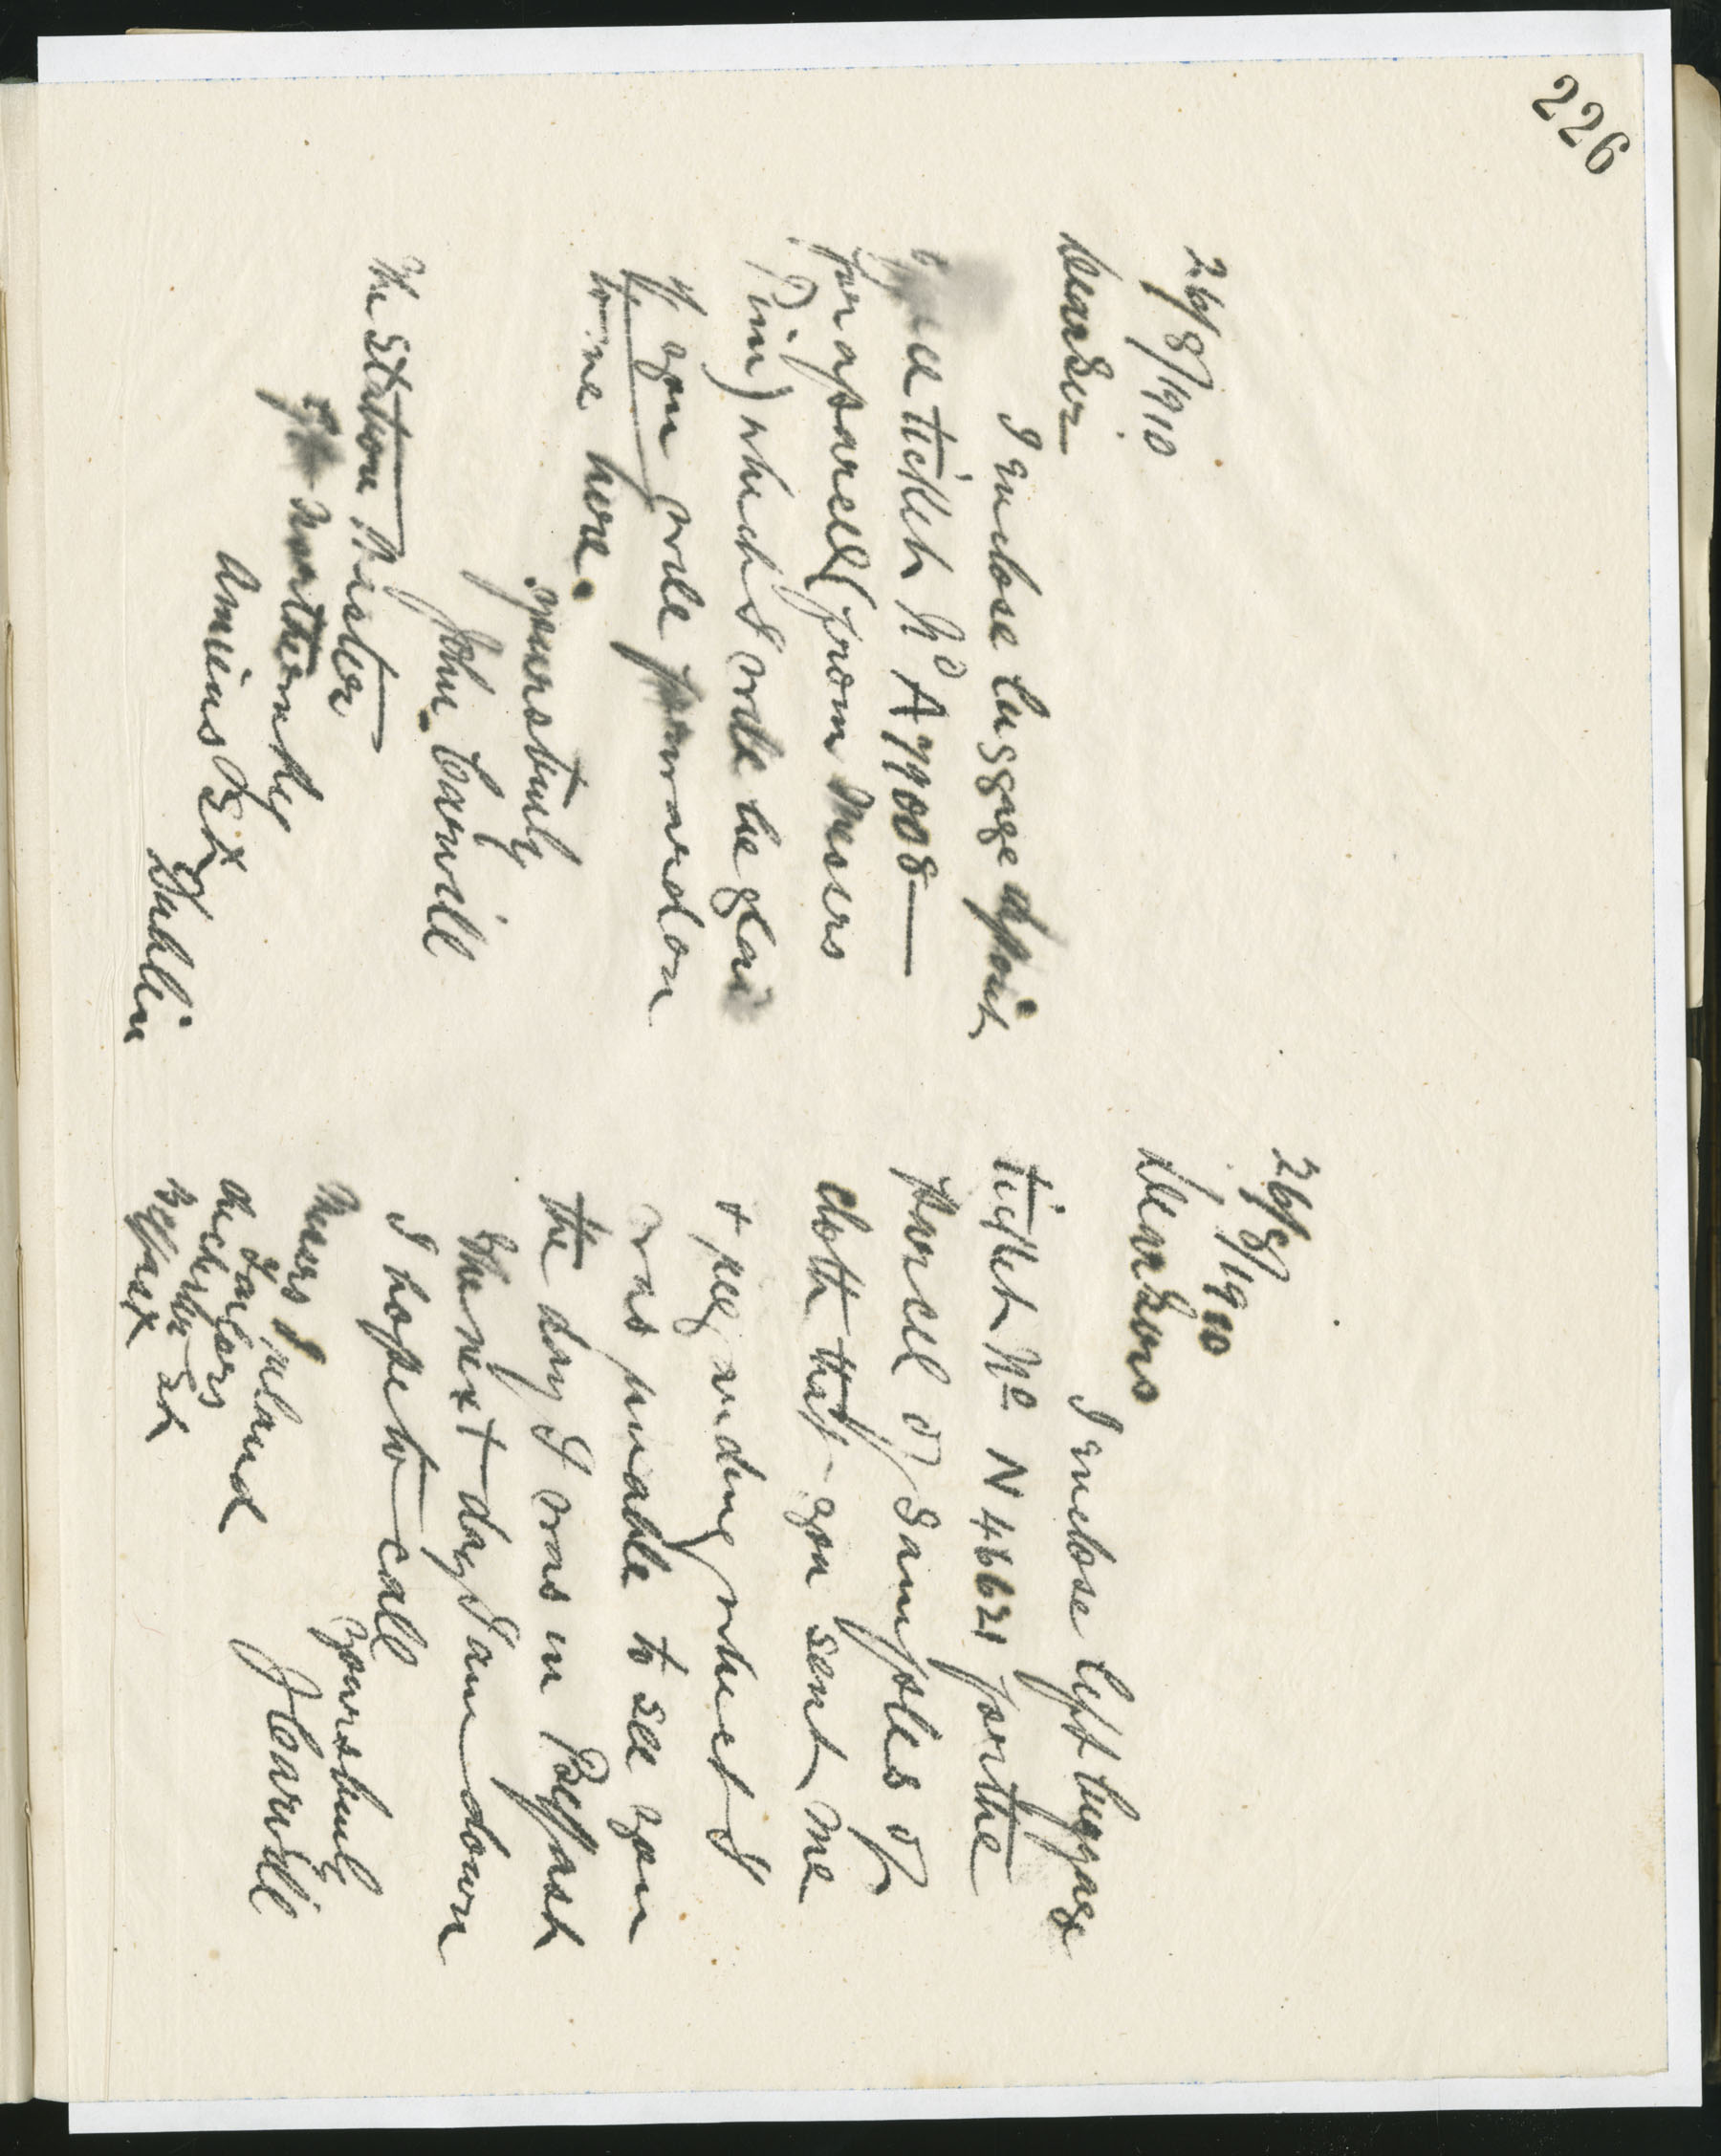 226
26/8/1910
Dear Sir
I enclose luggage
ticket No A 77008
for a parcel (from Messrs
Pim) which I will be glad
if you will forward on
to me here.
yours truly
John Carvill
The Station Master
Gt Northern Ry
Amiens St
Dublin
26/8/1910
Dear Sirs
I enclose left luggage
ticket No N 4662 for the
parcel of samples of
cloth that you sent me
was unable to see you
the day I was in Belfast
The next day I am down
I hope to call
yours truly
J Carvill
Messrs
Tailors
Belfast